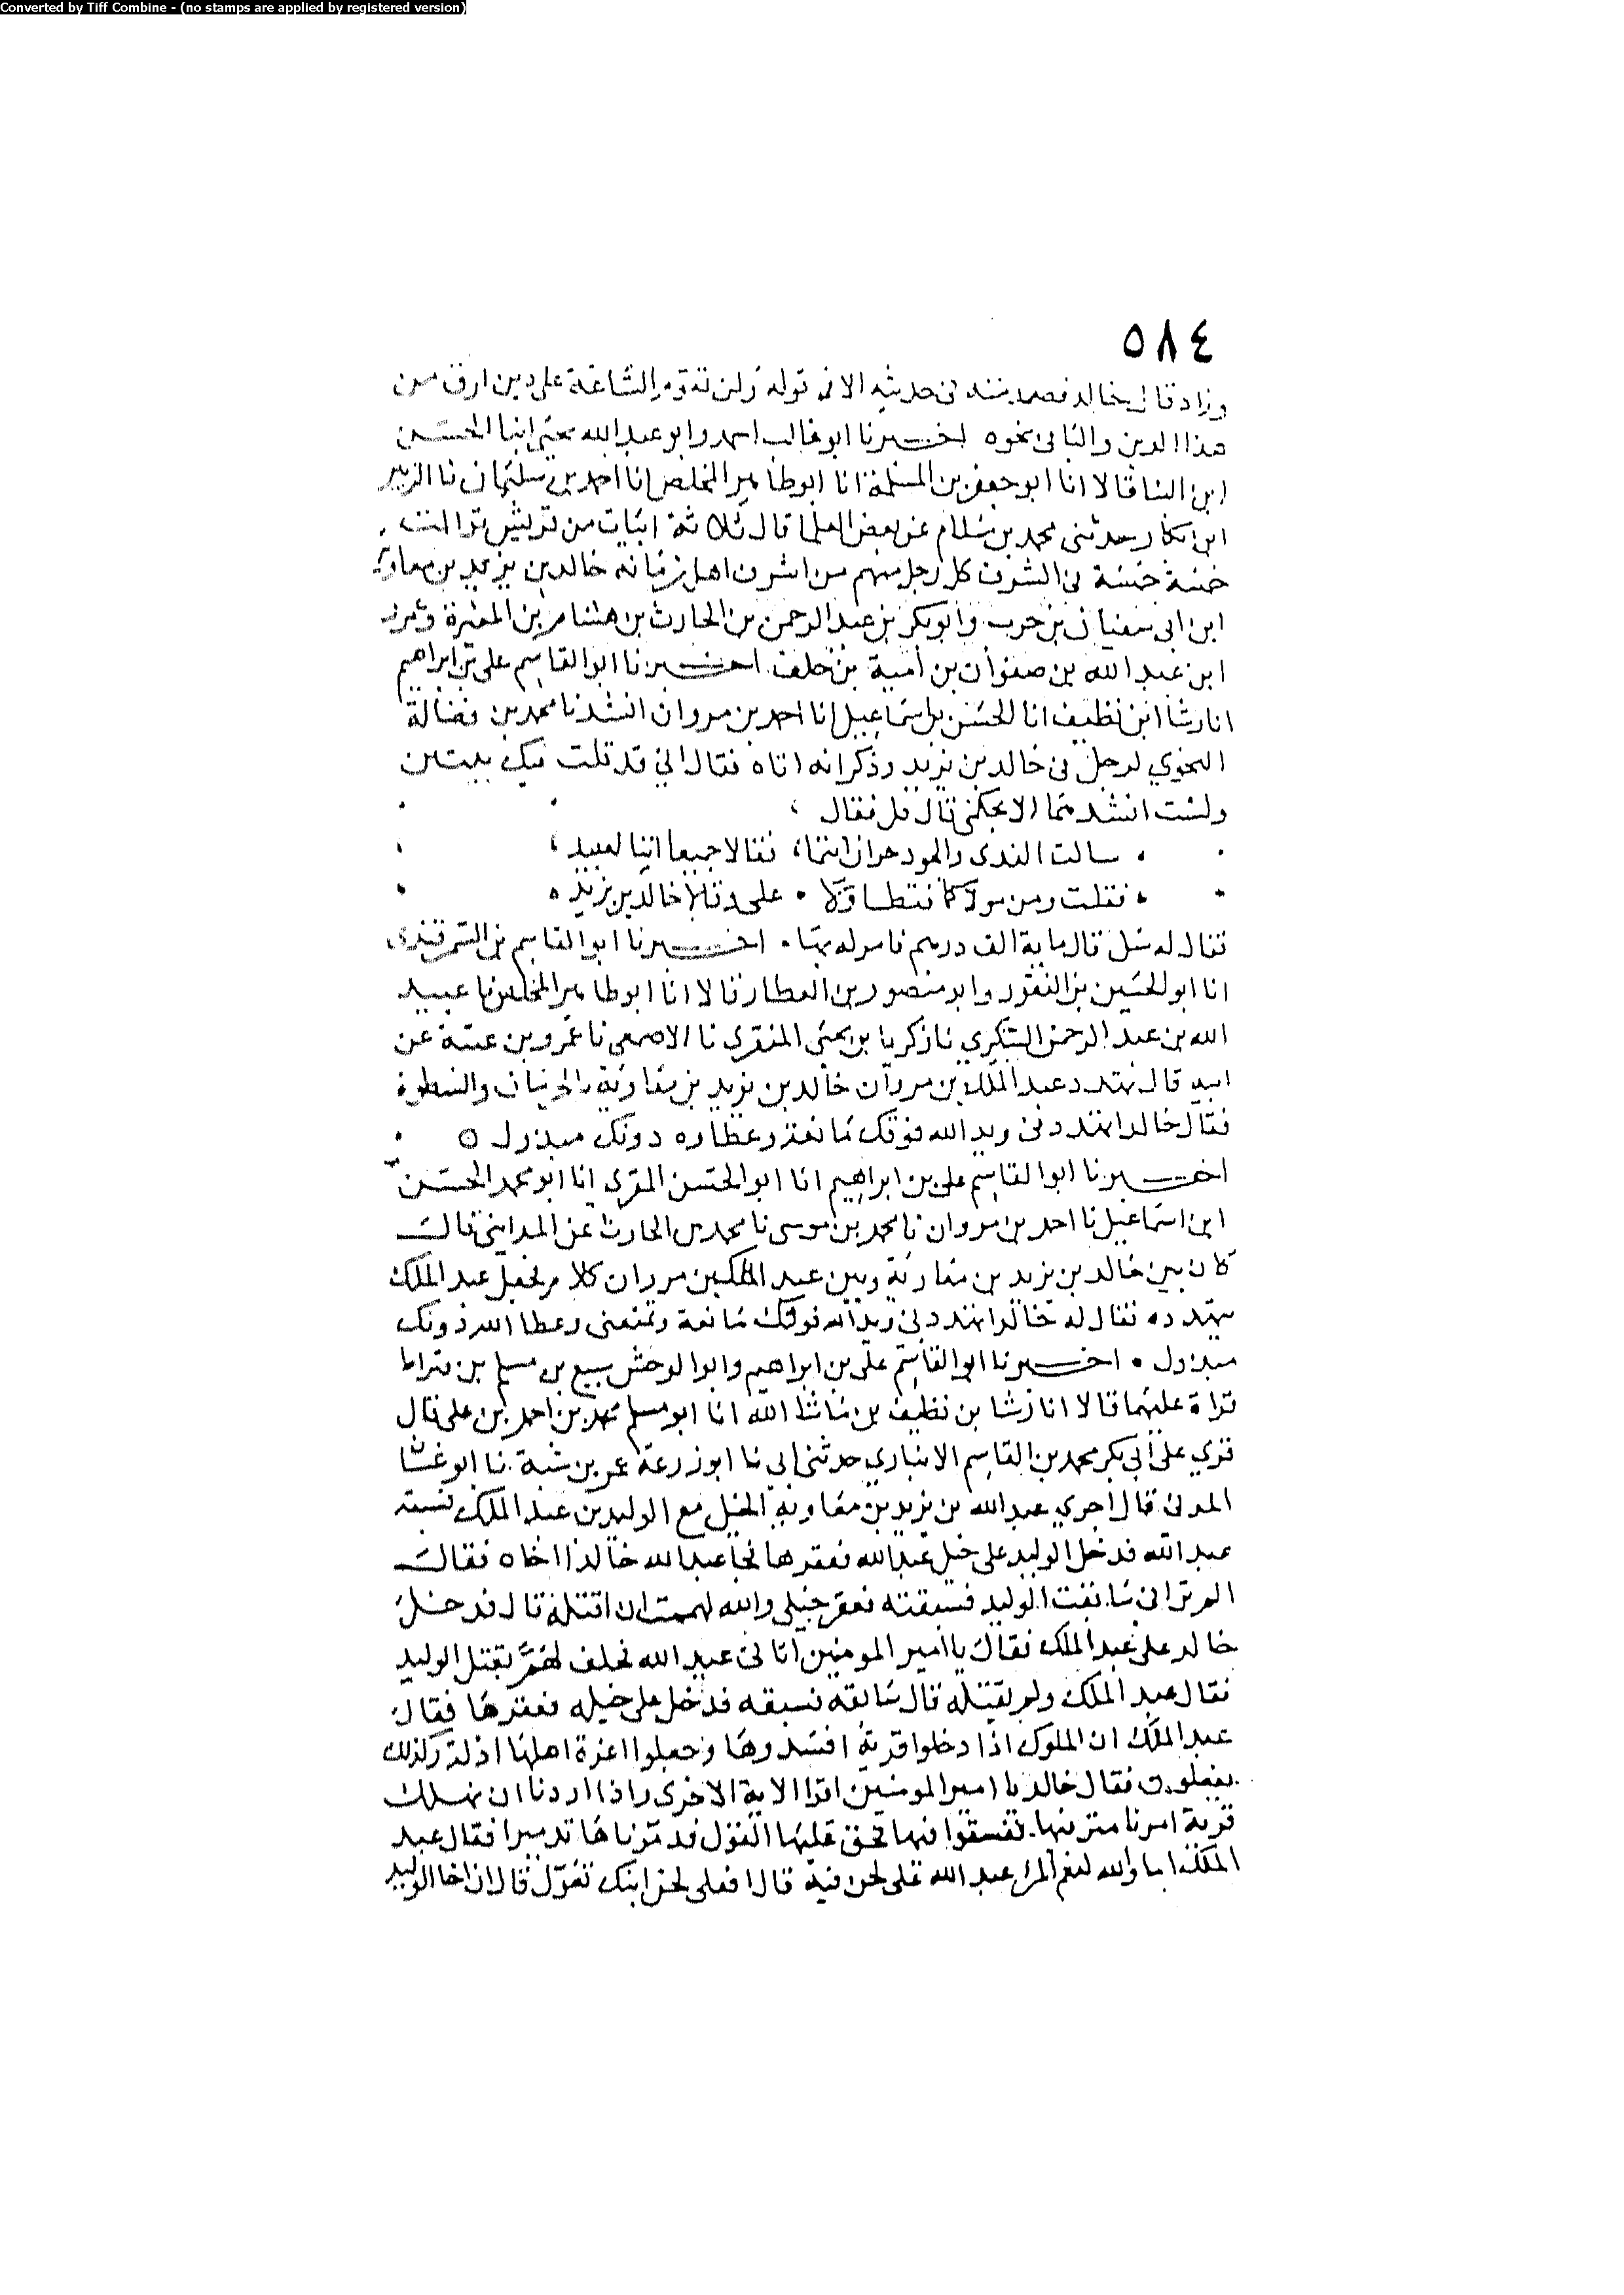 Converted by Tiff Combine - (no stamps are applied by registered version)
٥٨٤
وزاد قال خالد في حديثه الا قوله ولن تقوم الساعة على دين ارق من
هذا الدين والباقي نحوه اخبرنا ابو غالب احمد وابو عبد الله يحيى ابنا الحسن
ابن البنا قالا انا ابو جعفر بن المسلمة انا ابو طاهر المخلص انا احمد بن سليمان نا الزبير
ابن بكار حدثني محمد بن سلام عن بعض العلما قال ثلاثة ابيات من قريش توالت
خمسة خمسة في الشرف كل رجل منهم من اشرف اهل زمانه خالد بن يزيد بن معاوية
ابن ابي سفيان بن حرب وابو بكر بن عبد الرحمن بن الحارث بن هشام بن المغيرة وعمرو
ابن عبد الله بن صفوان بن امية بن خلف اخبرنا ابو القاسم علي بن ابراهيم
انا رشا ابن نظيف انا الحسن بن اسماعيل انا احمد بن مروان انشدنا محمد بن فضالة
النحوي لرجل في خالد بن يزيد وذكر انه اتاه فقال اني قد قلت فيك بيتين
ولست انشدهما الا بحكمي قال قل فقال
سالت الندى والجود حران انتما فقالا جميعا اننا لعبيد
فقلت ومن مولاكما فتطاولا على وقالا خالد بن يزيد
فقال له سل قال ماية الف درهم فامر له بها اخبرنا ابو القاسم بن السمرقندي
انا ابو الحسين بن النقور وابو منصور بن العطار قالا انا ابو طاهر المخلص نا عبيد
الله بن عبد الرحمن السكري نا زكريا بن يحيى المنقري نا الاصمعي نا عمرو بن عتبة عن
ابيه قال تهدد عبد الملك بن مروان خالد بن يزيد بن معاوية بالحرمان والسطوة
فقال خالد اتهددني ويد الله فوقك مانعة وعطاوه دونك مبذول
اخبرنا ابو القاسم علي بن ابراهيم انا ابو الحسن المقري انا ابو محمد الحسن
ابن اسماعيل نا احمد بن مروان نا محمد بن موسى نا محمد بن الحارث عن المدايني قال
كان بين خالد بن يزيد بن معاوية وبين عبد الملك بن مروان كلام فجعل عبد الملك
يتهدده فقال له خالد اتهددني ويد الله فوقك مانعة وعطا الله دونك
مبذول اخبرنا ابو القاسم علي بن ابراهيم وابو الوحش سبيع بن مسلم بن قيراط
قراة عليهما قالا انا رشا بن نظيف بن ماشا الله انا ابو مسلم محمد بن احمد بن علي قال
قري على ابي بكر محمد بن القاسم الانباري حدثني ابي نا ابو زرعة عمر بن شبة نا ابو غسا
المدني قال اجري عبد الله بن يزيد بن معاوية الخيل مع الوليد بن عبد الملك فسبقه
عبد الله فدخل الوليد على خيل عبد الله فعقرها فجا عبد الله خالدا اخاه فقال
الم تر اني سابقت الوليد فسبقته فعقر خيلي والله لهممت ان اقتله قال فدخل
خالد على عبد الملك فقال يا امير المومنين اتاني عبد الله فحلف لهم بقتل الوليد
فقال عبد الملك ولم يقتله قال سابقه فسبقه فدخل على خيله فعقرها فقال
عبد الملك ان الملوك اذا دخلوا قرية افسدوها وجعلوا اعزة اهلها اذلة وكذلك
يفعلون فقال خالد يا امير المومنين اقرا الاية الاخرى واذا اردنا ان نهلك
قرية امرنا مترفيها ففسقوا فيها فحق عليها القول فدمرناها تدميرا فقال عبد
الملك اما والله لنعم المرء عبد الله على لحن فيه قال افعلى لحن ابنك تعول قال ان اخا الوليد